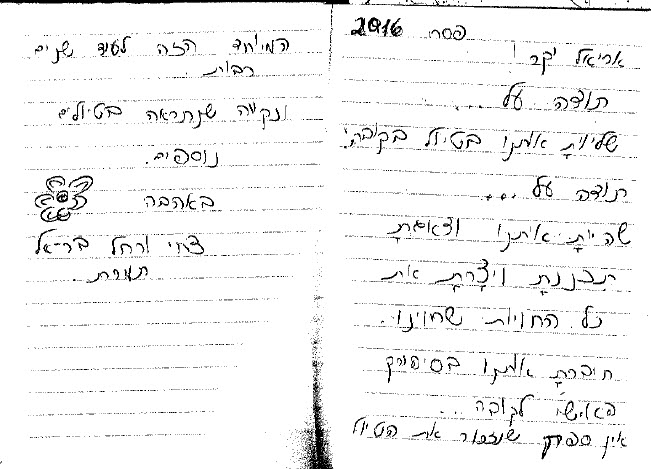 פסח 2016
אריאל יקר!
תודה על ...
שליווית אותנו בטיול בקובה,
תודה על ...
שהיית איתנו ודאגת
תכננת ויצרת את
כל החוויות שחווינו.
חיברת אותנו בסיפורך
האישי לקובה...
אין ספק שנזכור את הטיול
המיוחד הזה לעוד שנים
רבות.
ונקווה שנתראה בטיולים
נוספים.
באהבה
צבי ורחל בר-אל